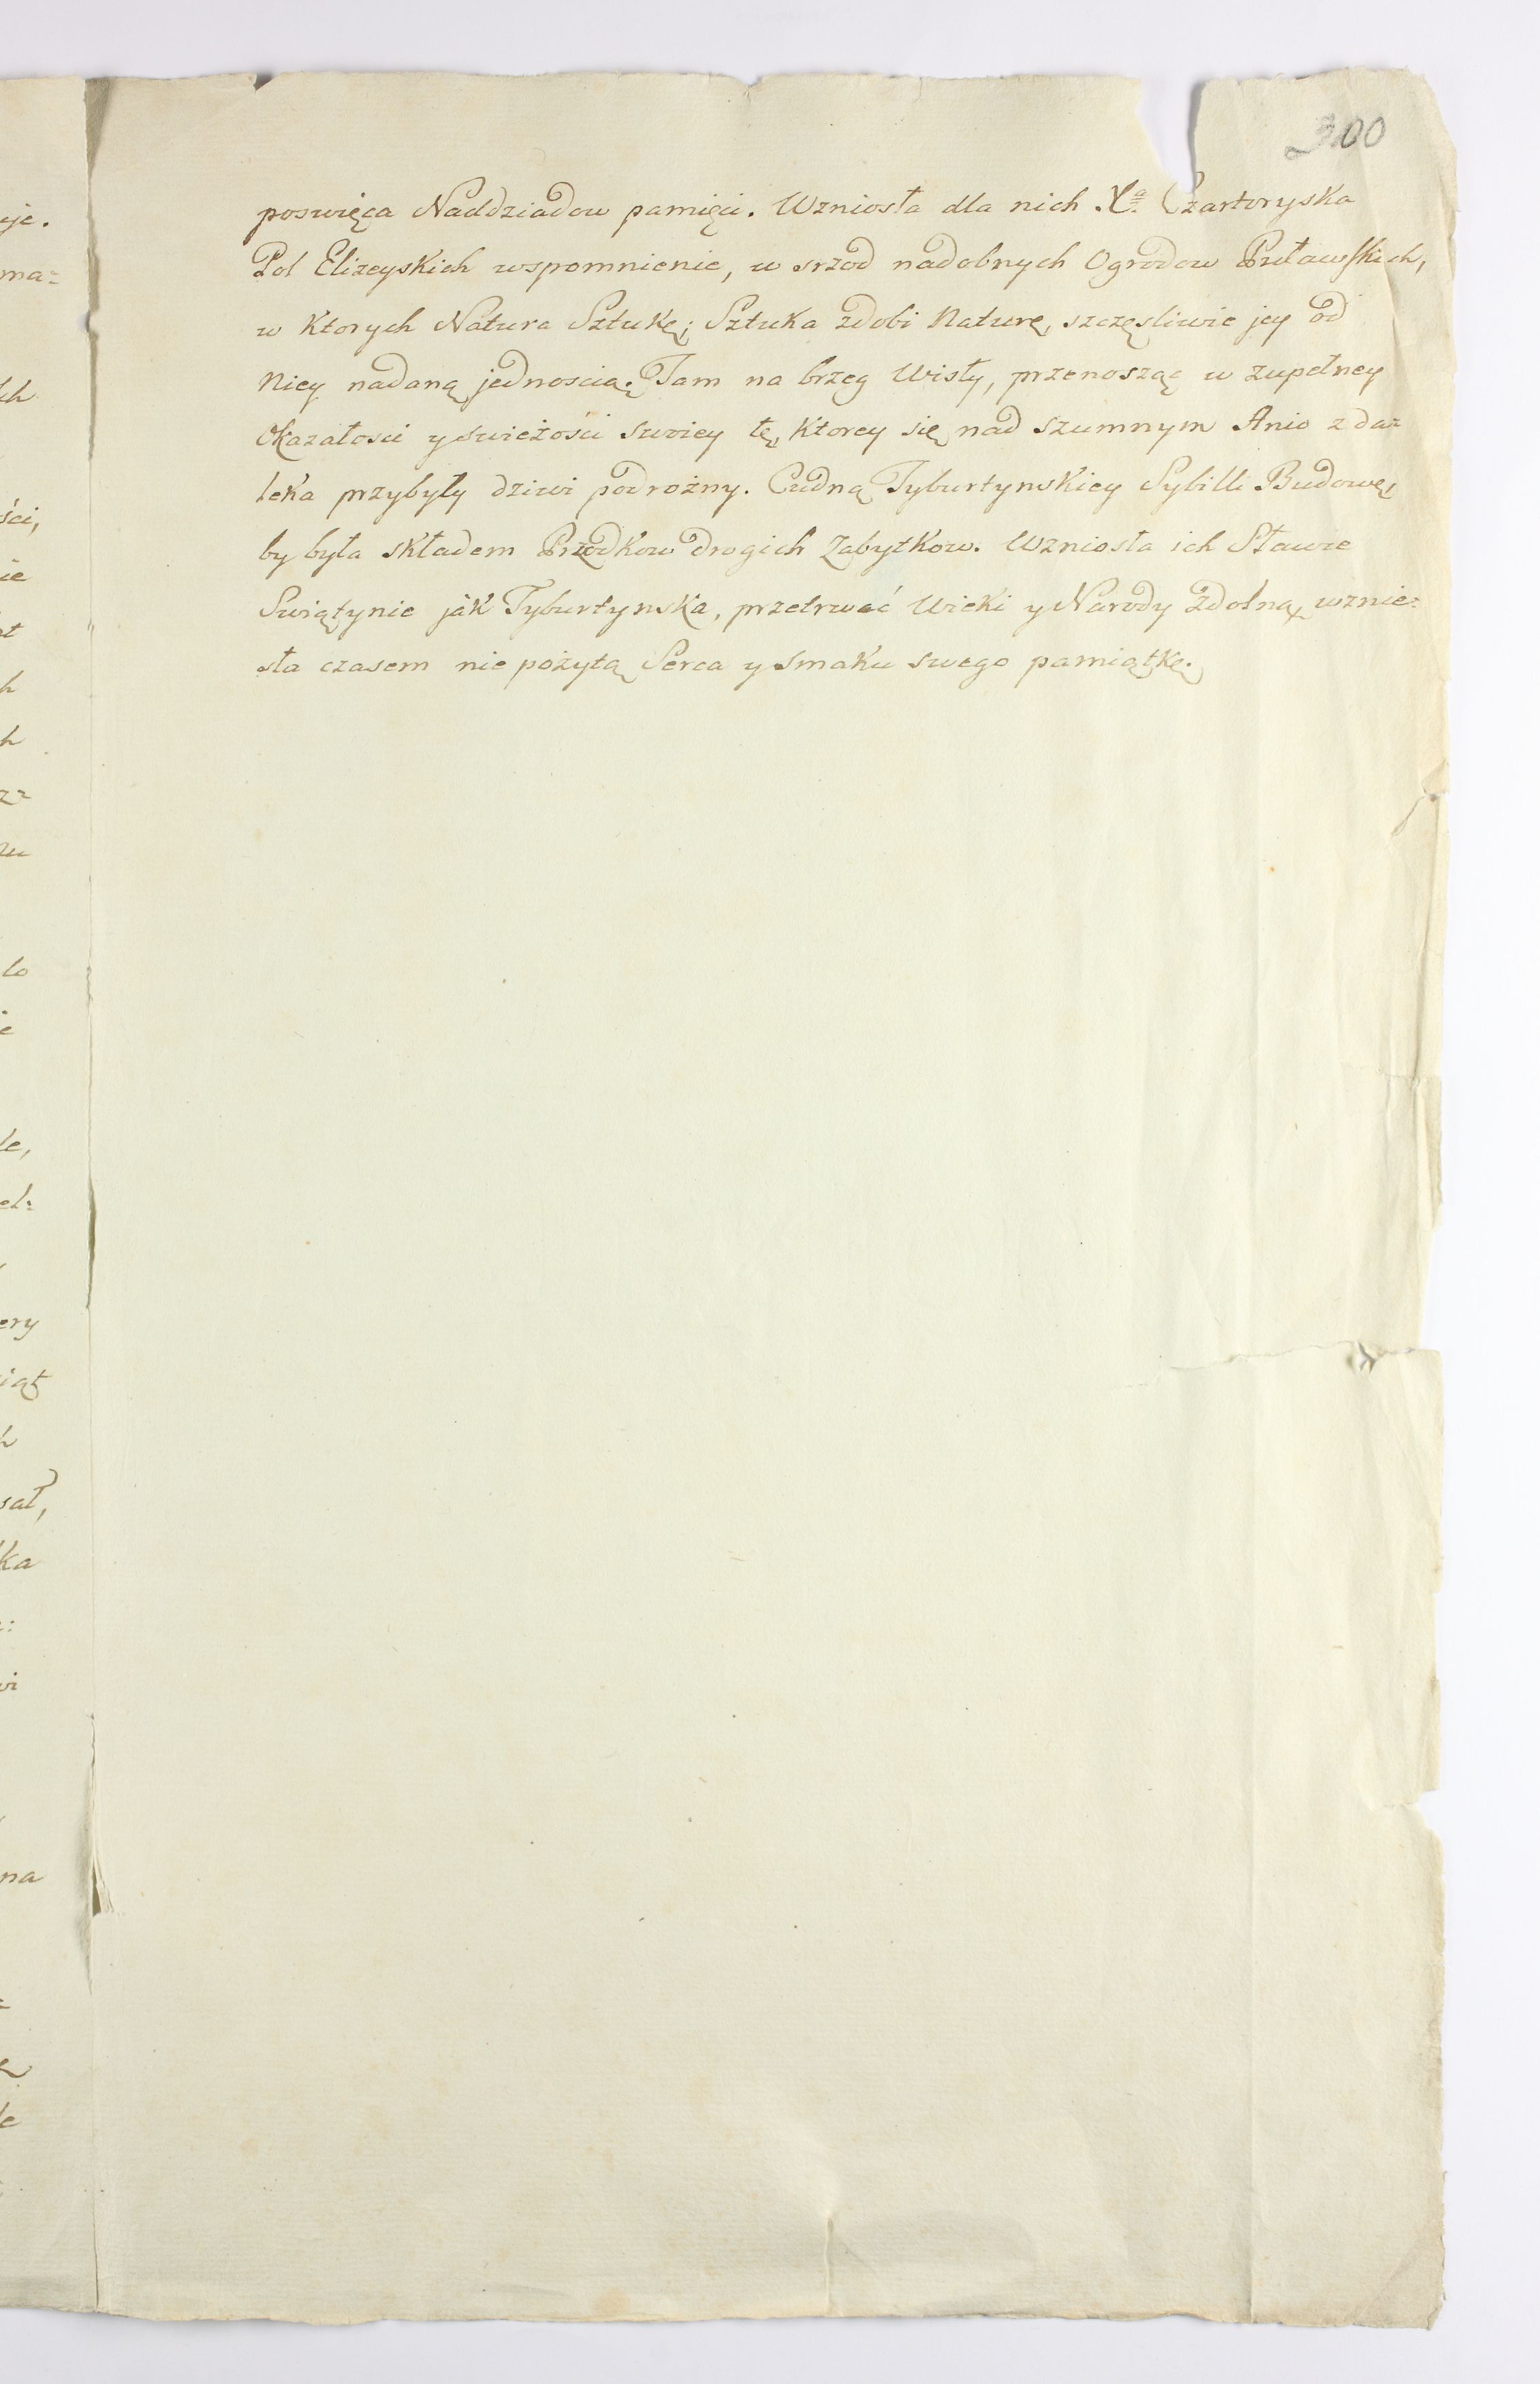 300
poswięca Naddziadow pamięci. Wzniosła dla nich Xa. Czartoryska
Pol Elizeyskich wspomnienie, w srzod nadobnych Ogrodow Puławskich,
w Ktorych Natura Sztukę; Sztuka zdobi Naturę, szczęsliwie jey od
Niey nadaną jednoscią. Tam na brzeg Wisły, przenosząc w zupełney
Okazałosci y swieżości swoiey tę, Ktorey się nad szumnym Anio z da=
leka przybyły dziwi podrożny. Cudną Tyburtynskiey Sybilli Budowę,
by była składem Przodkow drogich Zabytkow. Wzniosła ich Sławie
Swiątynie jak Tyburtynska, przetrwać Wieki y Narody zdolną, wznie=
sła czasem nie pożytą Serca y smaku swego pamiątkę.